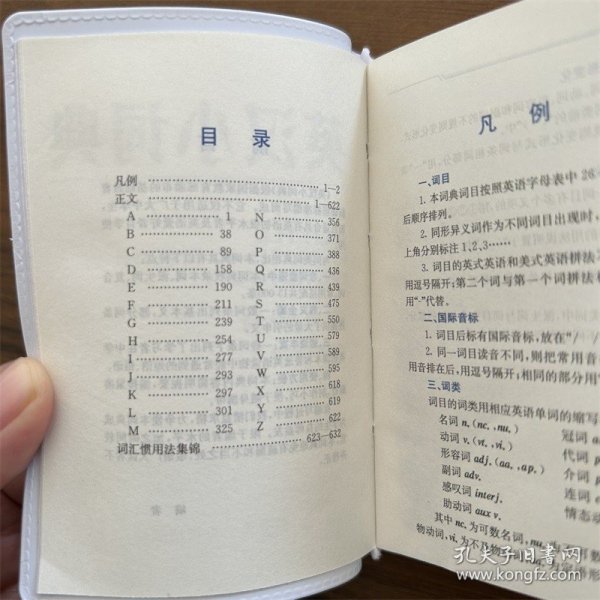 目 录
凡例 1—2
正文 1—622
A 1 N 356
B 38 O 371
C 89 P 388
D 158 Q 436
E 190 R 439
F 211 S 475
G 239 T 550
H 254 U 579
I 277 V 589
J 293 W 595
K 297 X 618
L 301 Y 619
M 325 Z 622
词汇惯用法集锦 623—632
凡 例
一、词目
1. 本词典词目按照英语字母表中 26
后顺序排列。
2. 同形异义词作为不同词目出现时，
上角分别标注 1，2，3……
3. 词目的英式英语和美式英语拼法
用逗号隔开；第二个词与第一个词拼法
用“-”代替。
二、国际音标
1. 词目后标有国际音标，放在“/ /
2. 同一词目读音不同，则把常用音
用音排在后，用逗号隔开；相同的部分用“
三、词类
词目的词类用相应英语单词的缩写
名词 n. (nc., nu.) 冠词
动词 v. (vt., vi.) 代词
形容词 adj. (aa., ap.) 介词
副词 adv. 连词
感叹词 interj. 情态动
助动词 aux v.
其中 nc. 为可数名词，nu. 为不可数
物动词，vi. 为不及物动词
孔夫子旧书网
www.kongfz.com